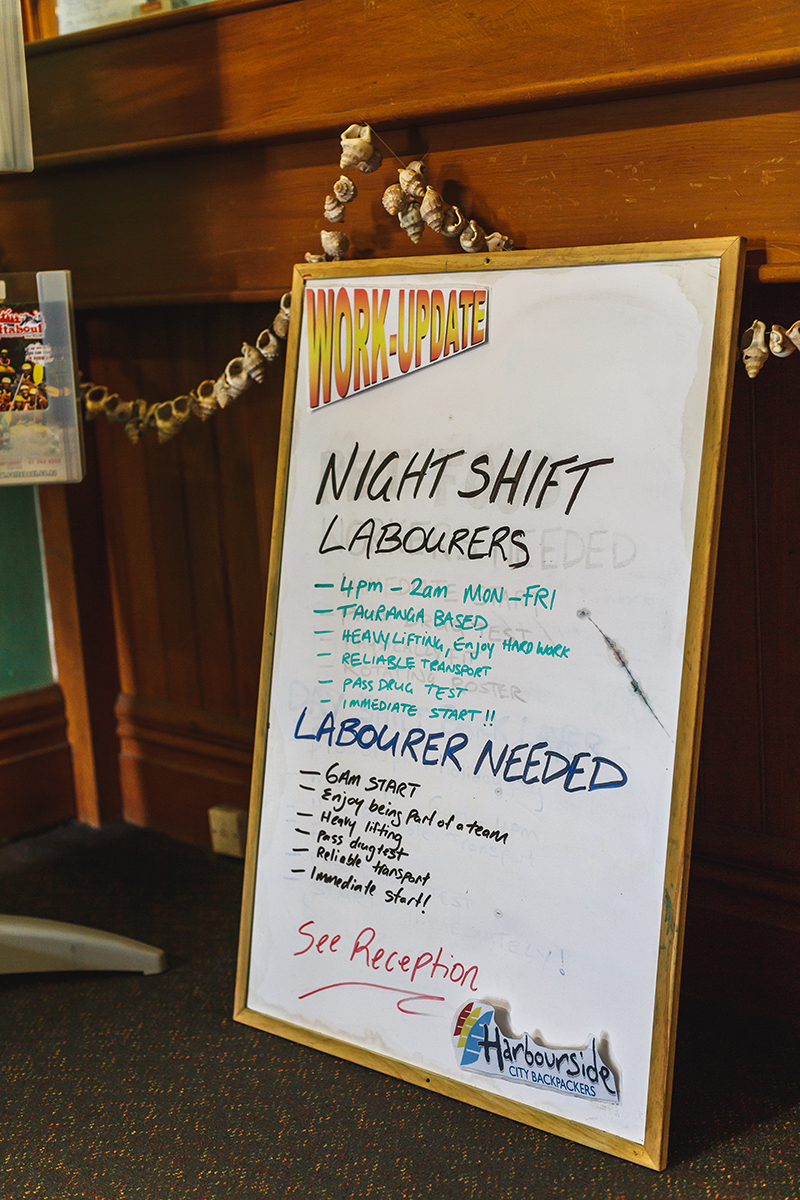 WORK-UPDATE
NIGHT SHIFT
LABOURERS
- 4pm - 2am MON-FRI
- TAURANGA BASED
- HEAVY LIFTING, Enjoy HARD WORK
- RELIABLE TRANSPORT
- PASS DRUG TEST
- IMMEDIATE START!!
LABOURER NEEDED
- 6AM START
- Enjoy being part of a team
- Heavy lifting
- Pass drug test
- Reliable transport
- Immediate start!
See Reception
Harbourside
CITY BACKPACKERS